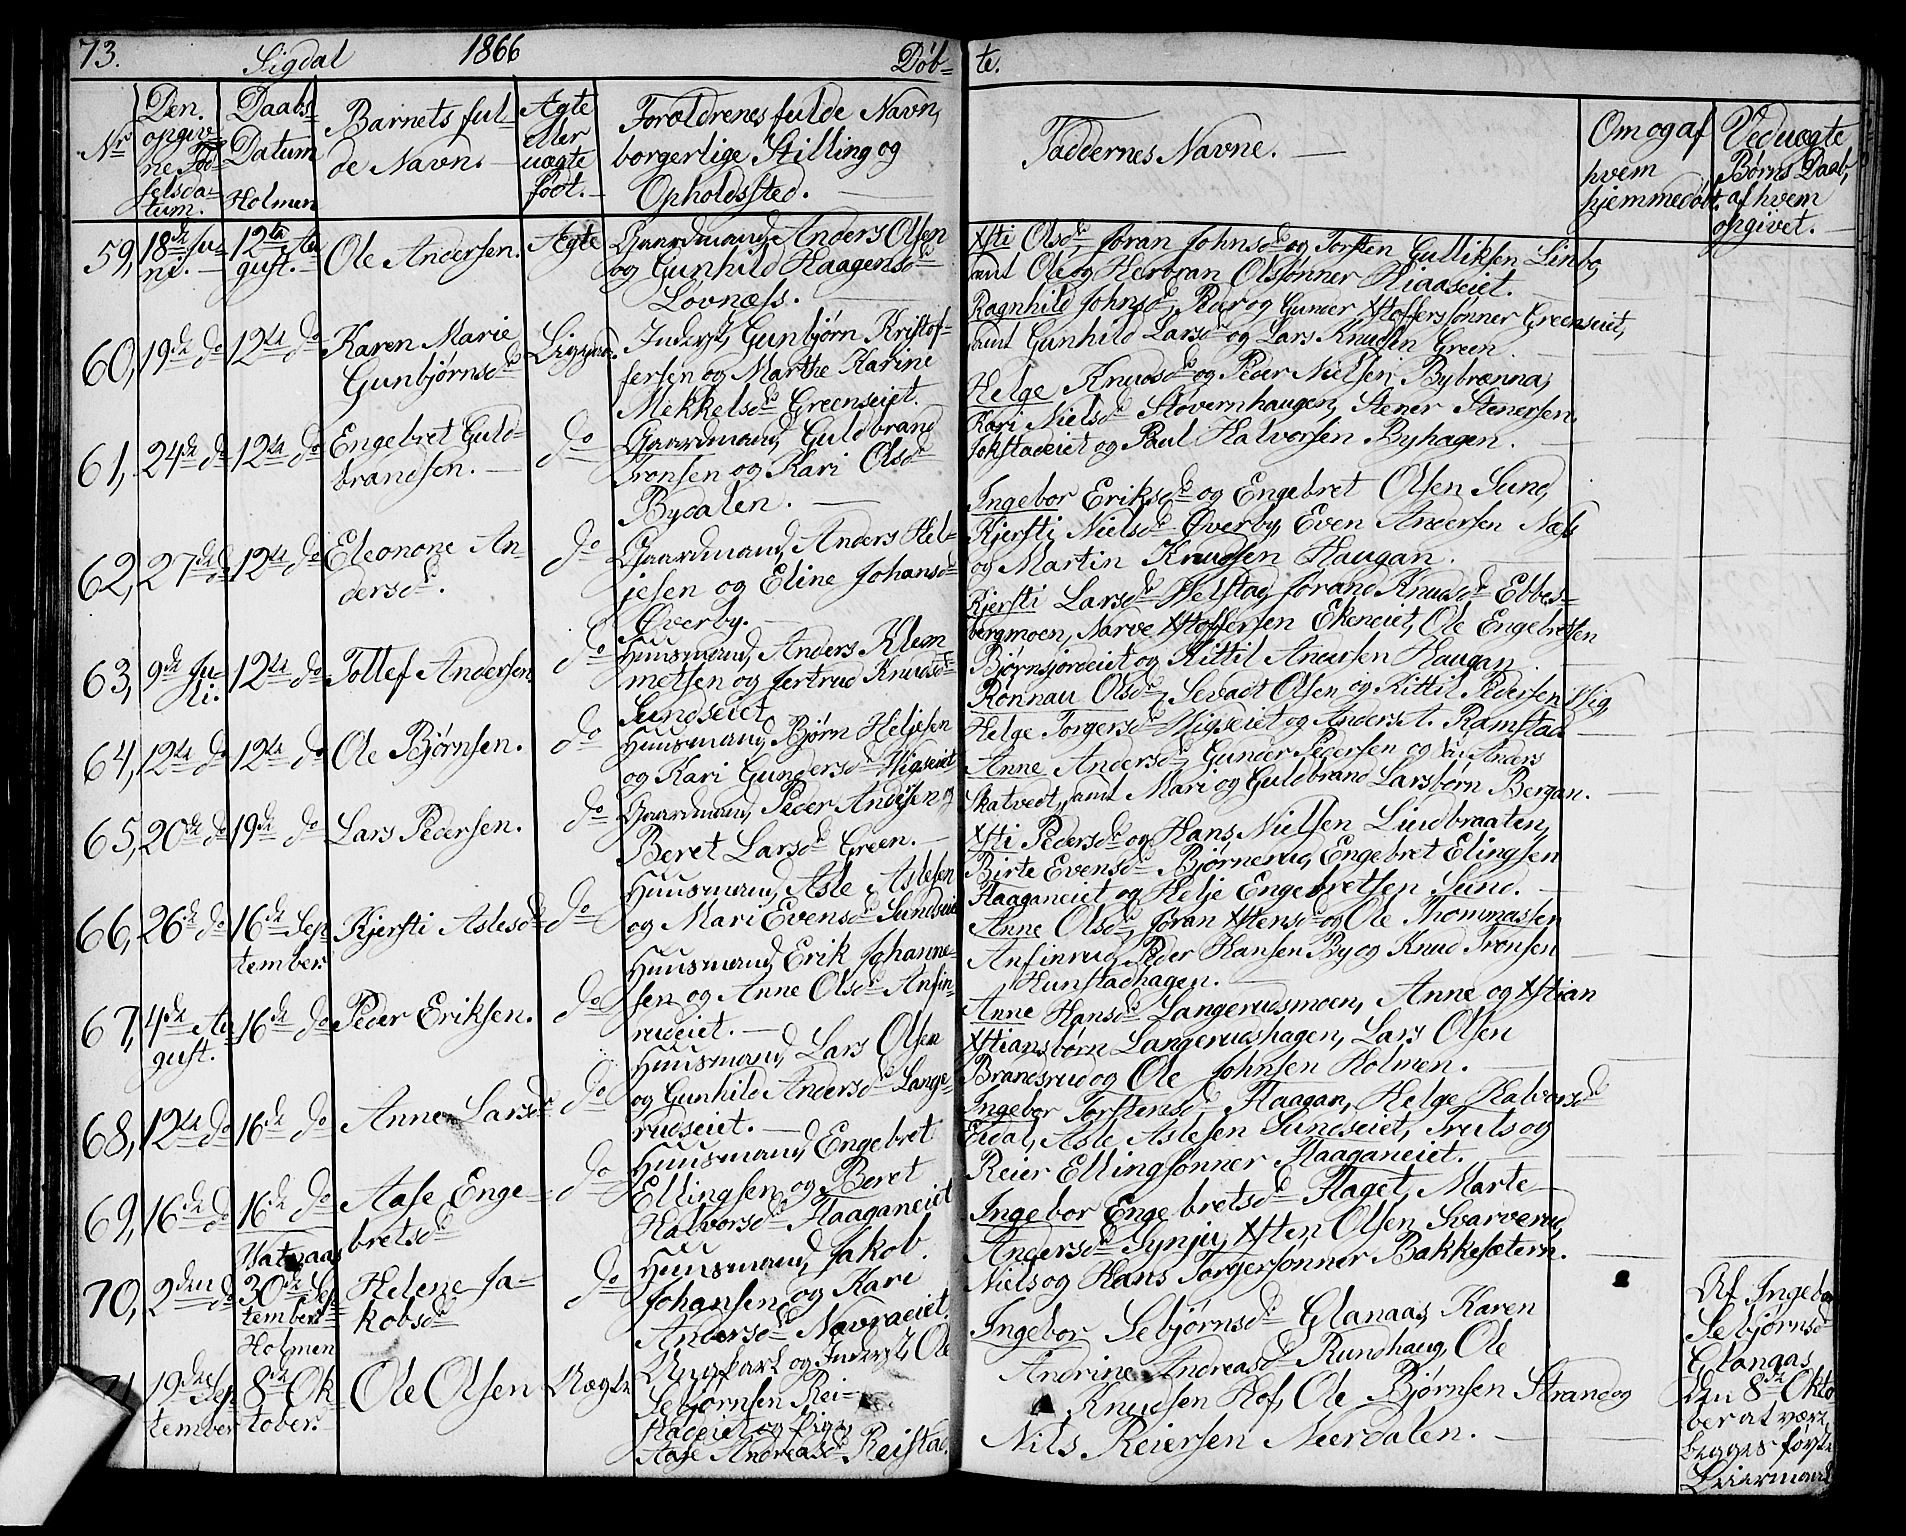 73. Sigdal 1866 Døb=
te.
Nr
Den opgiv=
ne Fød=
selsda=
tum.
Daabs=
Datum
Holmen
Barnets ful=
de Navn.
Ægte
eller
uægte
født.
Forældrenes fulde Navn,
borgerlige Stilling og
Opholdssted.
Faddernes Navne.
Om og af
hvem
hjemmedøbt.
Ved uægte
Børns Daab,
af hvem
opgivet.
59, 18de Ju=
ni.
12te Au
gust.
Ole Andersen.
Ægte
Gaardmand Anders Olsen
og Gunhild Haagensd
Lovnæss.
Xsti Olsd, Jøran Johnsd og Torsten Gulliksen Linbo,
samt Ole og Herbran Olssønner Hiaaseiet.
60, 19de do
12te do
Karen Marie
Gunbjørnsd
Inderst, Gunbjørn Kristof=
fersen og Marthe Karine
Mekkelsd Greenseiet.
Ragnhild Johnsd, Roar og Gunder Xstofferssønner Greenseiet,
samt Gunhild Larsd og Lars Knudsen Green.
61, 24de do
12te do
Engebret Guld=
brandsen.
do
Gaardmand, Guldbrand
Tronsen og Kari Olsd
Bydalen.
Helge Knudsd og Peder Nielsen Bybrænna,
Kari Nielsd Støvernhaugen, Stener Stenersen
Jokstadeiet og Paul Halvorsen Byhagen.
62, 27de do
12te do
Eleonone An=
dersd.
do
Gaardmand, Anders Hel=
jesen og Eline Johansd
Øverby.
Ingebor Eriksd og Engebret Olsen Sund,
Kjersti Nielsd Øverby, Even Andersen Næss
og Martin Knudsen Haugan.
63, 9de Ju=
li.
12te do
Tollef Andersen
do
Huusmand, Anders Klem
metsen og Jertrud Knudsd
Sundseiet
Kjersti Larsd Helstad, Jørand Knudsd Ebbes=
bergmoen, Narve Xstoffersen Ekeneiet, Ole Engebretsen
Bjørnsjordeiet og Kittil Andersen Haugan.
64, 12te do
12te do
Ole Bjørnsen.
do
Huusmand, Bjørn Heljesen
og Kari Gundersd Wigseiet
Rønnau Olsd, Sevadt Olsen og Kittil Pedersen Wig,
Helge Torgersd Wigseiet og Anders A. Ramstad
65, 20de do
19de do
Lars Pedersen.
do
Gaardmand, Peder Andersen og
Beret Larsd Green.
Anne Andersd, Gunder Pedersen og Anders
Skatvedt, samt Mari og Guldbrand Larsbørn Bergan.
66, 26de do
16de Sep
tember.
Kjersti Aslesd
do
Huusmand, Asle Aslesen
og Mari Evensd Sundseiet
Xsti Pedersd og Hans Nielsen Lindbraaten,
Birte Evensd Bjørnerud, Engebret Elingsen
Flaaganeiet og Helje Engebretsen Sund.
67, 4de Au
gust.
16de do
Peder Eriksen.
do
Huusmand, Erik Johanne=
sen og Anne Olsd Anfin=
rudeiet.
Anne Olsd, Jøran Xstensd og Ole Thommassen
Anfinrud, Peder Hansen By og Knud Tronsen
Hunstadhagen.
68, 12te do
16de do
Anne Larsd
do
Huusmand, Lars Olsen
og Gunhild Andersd Lange=
rudseiet.
Anne Hansd Langerudsmoen, Anne og Xstian
Xstiansbørn Langerudshagen, Lars Olsen
Brandsrud og Ole Johnsen Holmen.
69, 16de do
16de do
Aase Enge=
bretsd
do
Huusmand, Engebret
Ellingsen og Beret
Halvorsd Flaaganeiet
Ingebor Torstensd Flaagan, Helge Halvorsd
Eidal, Asle Aslesen Sundseiet, Truls og
Reier Ellingsønner Flaaganeiet.
Vatnaas
70, 2den do
30de Sep
tember.
Helene Ja=
kobsd
do
Huusmand, Jakob
Johansen og Kari
Andersd Navraeiet.
Ingebor Engebretsd Flaget, Marte
Andersd Gynju, Xsten Olsen Svarverud,
Niels og Hans Torgersønner Bakkesætern.
Holmen
19de Sep
tember
8de Ok
tober.
Ole Olsen
Uægte
Ungkarl og Inderst, Ole
Sebjørnsen Rei=
stadeiet og Pige
Aase Andreasd Reistad.
Ingebor Sebjørnsd Glanaas, Karen
Andrine Andreasd Rundhaug, Ole
Knudsen Hof, Ole Bjørnsen Strand og
Nils Reiersen Neerdalen.
Af Ingebor
Sebjørnsd
Glanaas
den 8de Okto
ber at være
begges første
Leiermaal